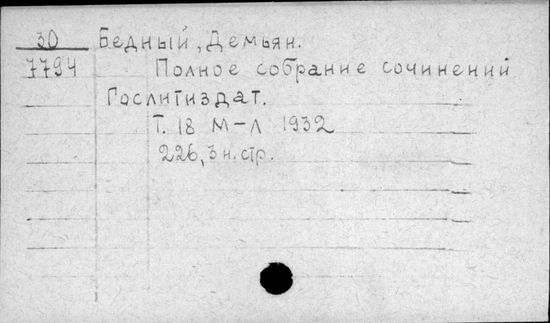 30 Бедный, Демьян.
7794 Полное собрание сочинений
Гослитиздат.
Т. 18 М-Л 1932
226, 3 н. стр.